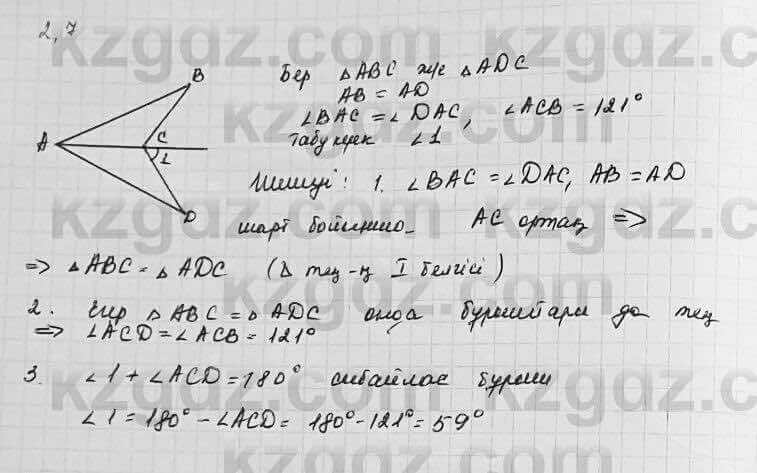 2,7
Бер △ABC же △ADC
AB = AD
∠BAC = ∠DAC, ∠ACB = 121°
Табу керек ∠1
B
A
C
1
D
Шешуі: 1. ∠BAC = ∠DAC, AB = AD
шарт бойынша AC ортақ =>
=> △ABC = △ADC (△ тең-ң I белгісі)
2. Егер △ABC = △ADC онда бұрыштары да тең
=> ∠ACD = ∠ACB = 121°
3. ∠1 + ∠ACD = 180° сыбайлас бұрыш
∠1 = 180° - ∠ACD = 180° - 121° = 59°
kzgdz.com